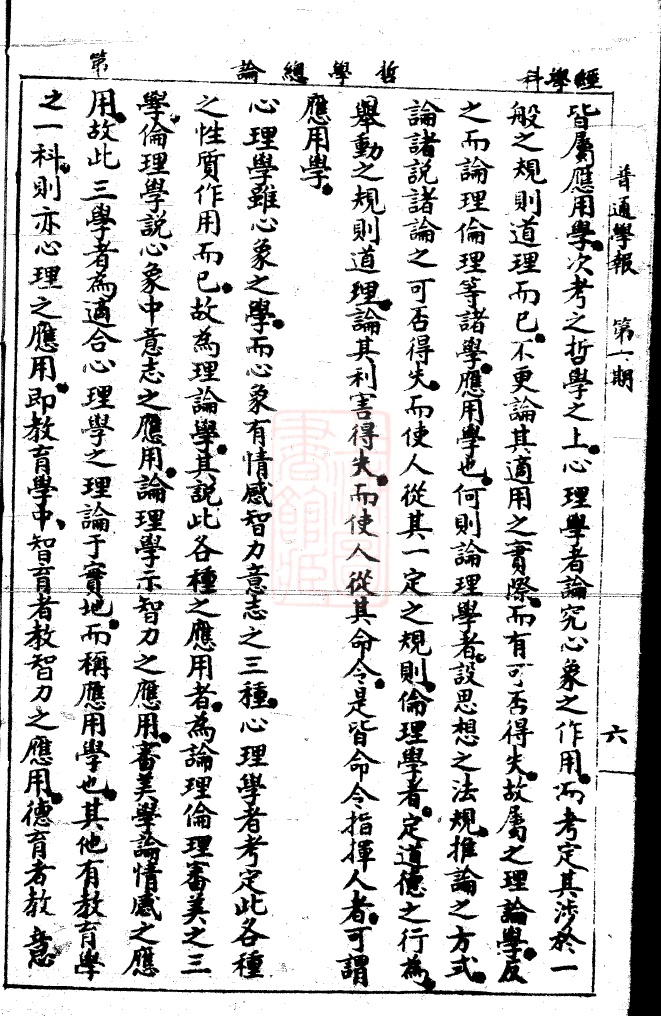 經學科
哲學總論
第
普通學報 第一期
六
皆屬應用學。次考之哲學之上。心理學者論究心象之作用。而考定其涉於一
般之規則道理而已。不更論其適用之實際。而有可否得失。故屬之理論學。反
之而論理倫理等諸學。應用學也。何則論理學者。設思想之法規。推論之方式。
論諸說諸論之可否得失。而使人從其一定之規則。倫理學者。定道德之行為。
舉動之規則道理。論其利害得失。而使人從其命令。是皆命令指揮人者。可謂
應用學。
心理學雖心象之學。而心象有情感智力意志之三種。心理學者考定此各種
之性質作用而已。故為理論學。其說此各種之應用者。為論理倫理審美之三
學。倫理學說心象中意志之應用。論理學示智力之應用。審美學論情感之應
用。故此三學者為適合心理學之理論于實地。而稱應用學也。其他有教育學
之一科。則亦心理之應用。即教育學中、智育者教智力之應用。德育者教意